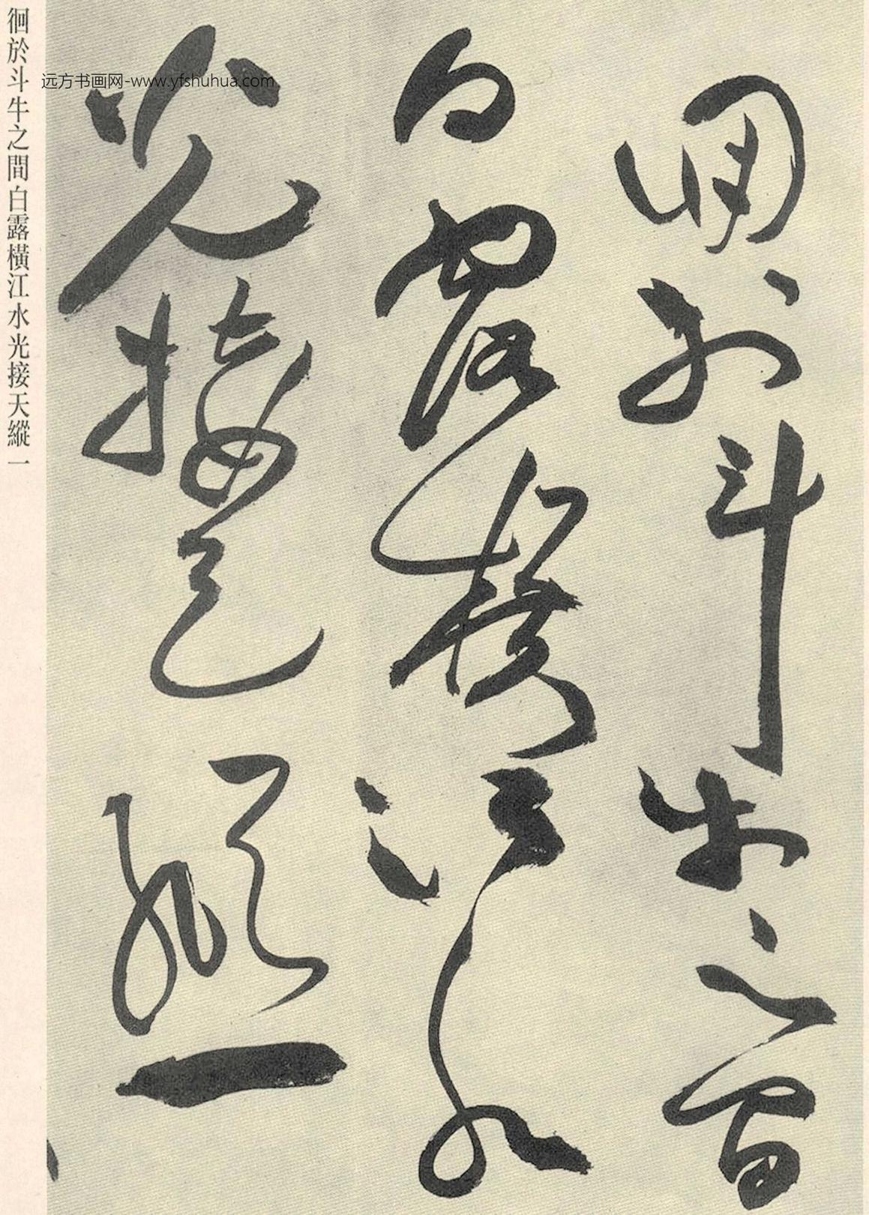 徊於斗牛之間
白露橫江水
光接天縱一
徊於斗牛之間白露橫江水光接天縱一
远方书画网-www.yfshuhua.com